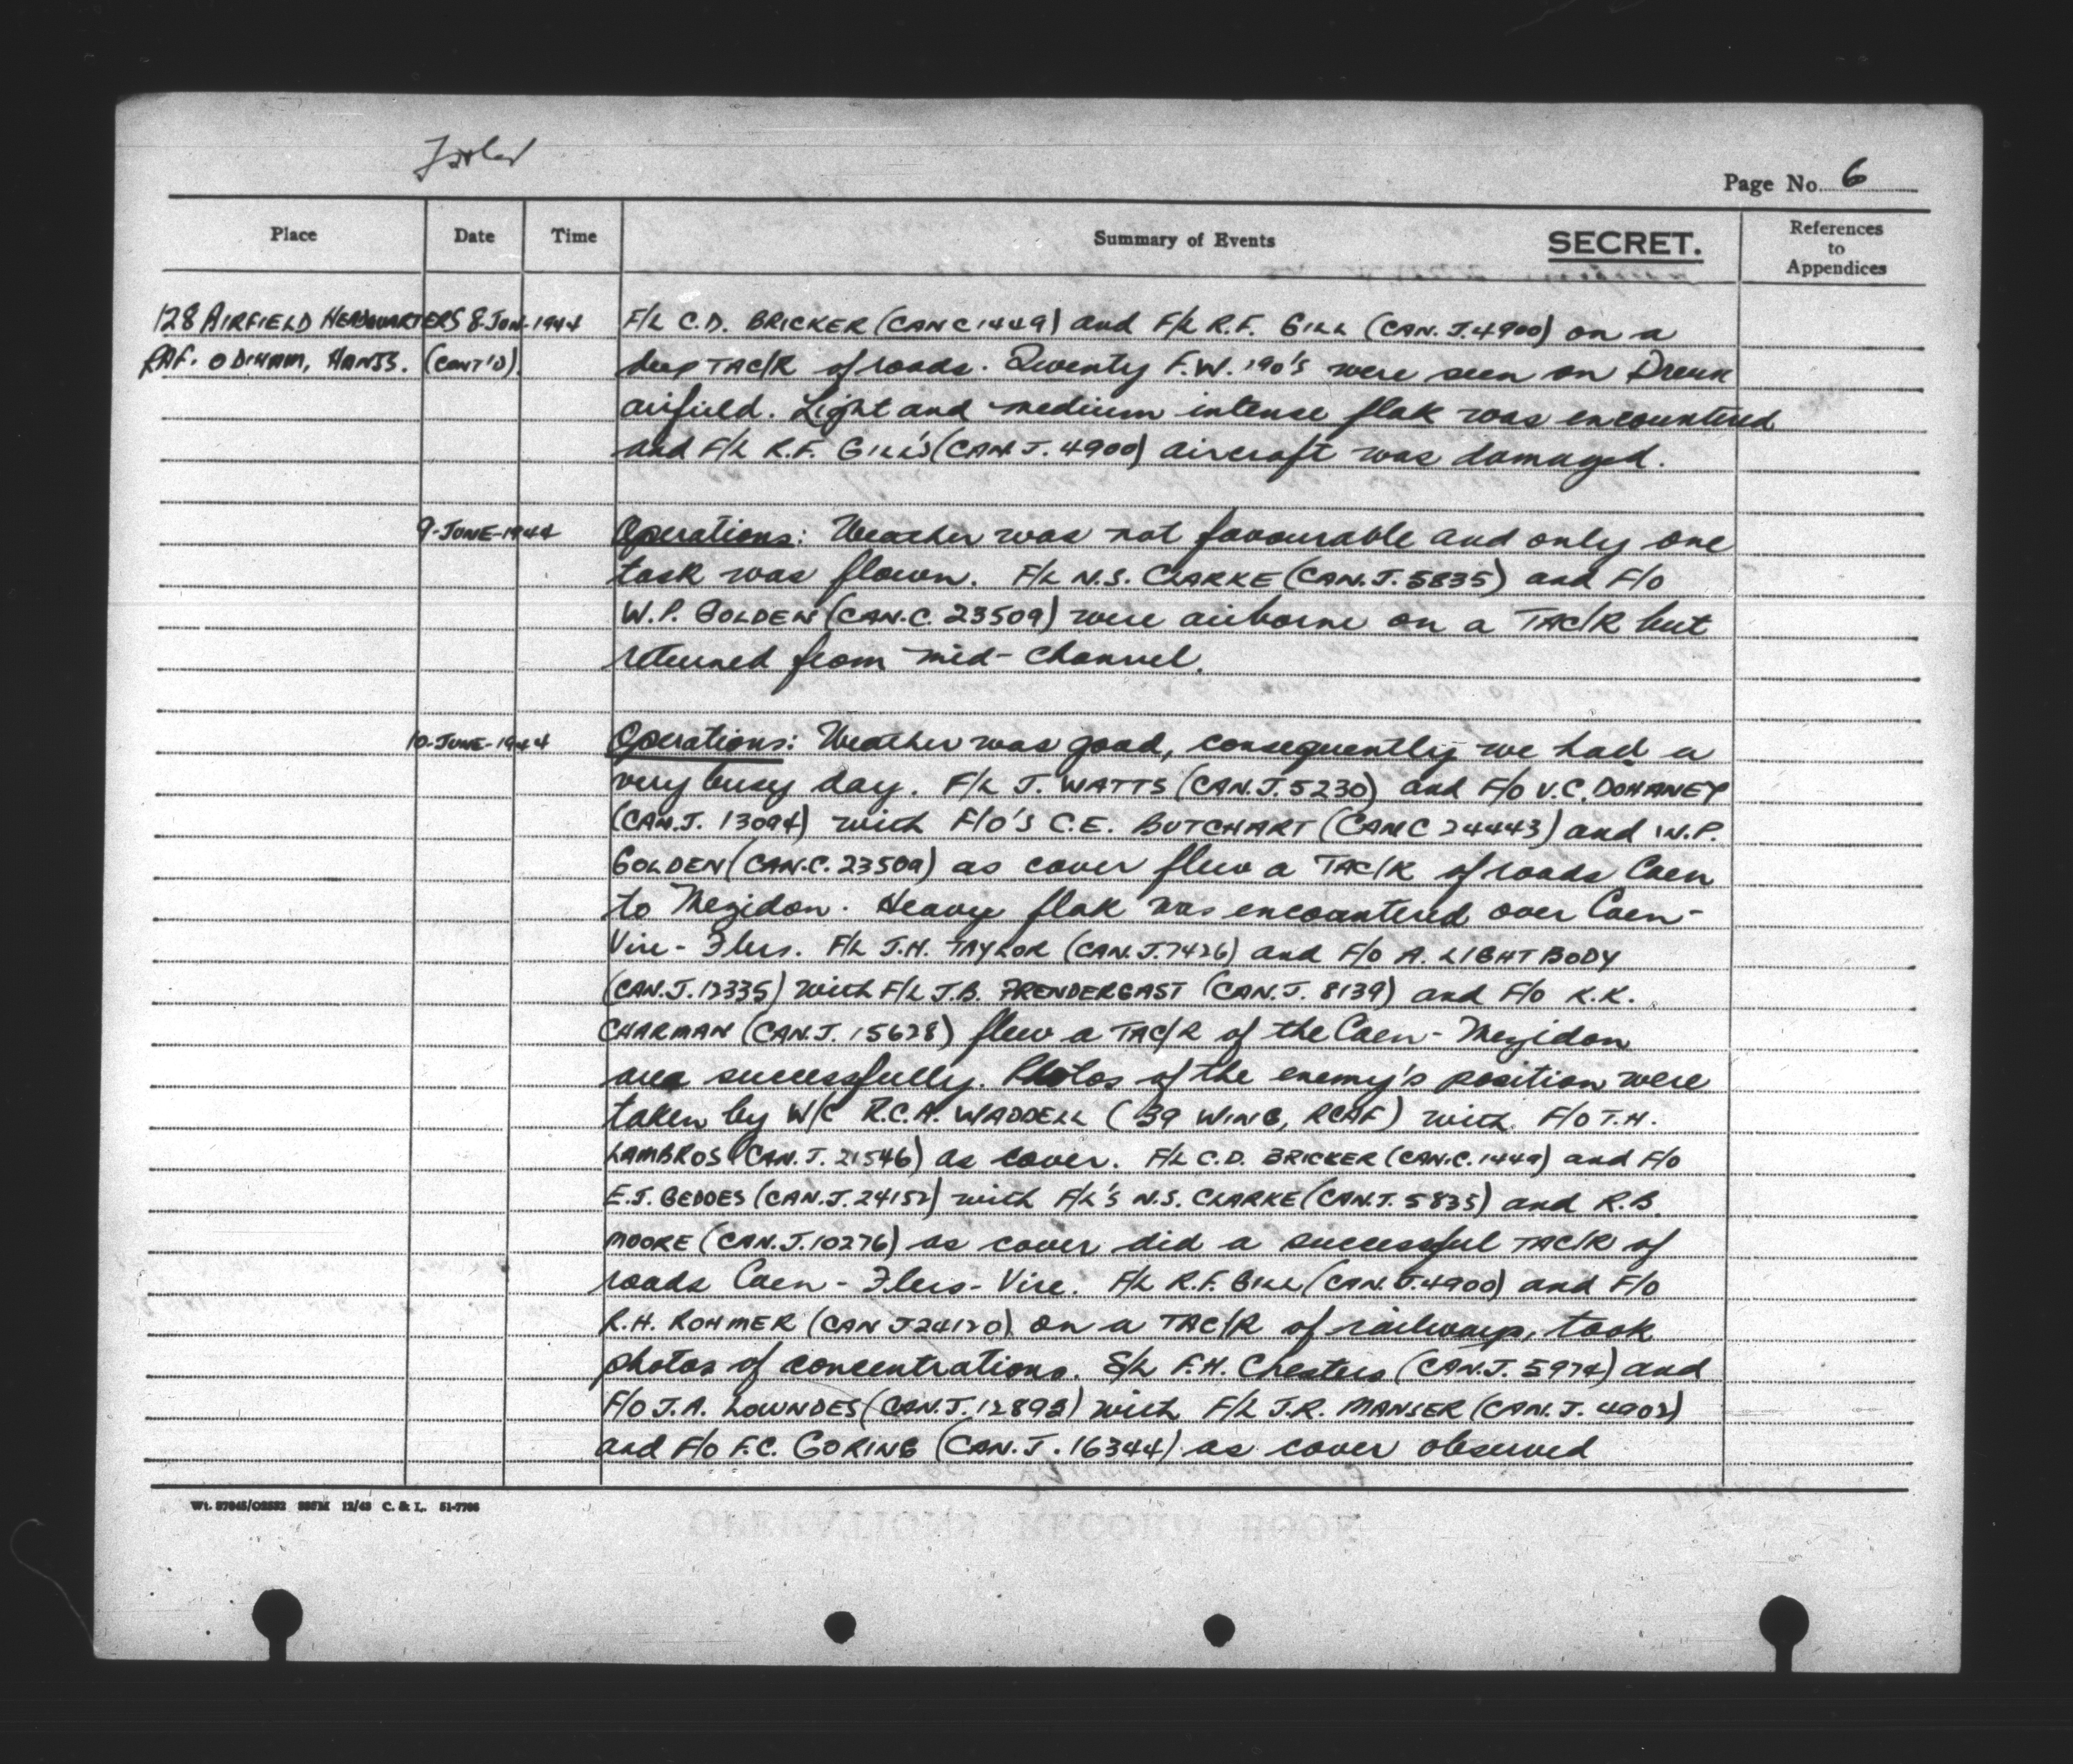 Page No. 6
Place Date Time Summary of Events SECRET. References to Appendices
128 AIRFIELD HEADQUARTERS 8-JUN-1944 F/L C.D. BRICKER (CAN C1449) and F/L R.F. GILL (CAN. J.4900) on a
RAF. ODIHAM, HANTS. (CONT'D) deep TAC/R of roads. Twenty F.W. 190's were seen on Dreux
airfield. Light and medium intense flak was encountered
and F/L R.F. GILL'S (CAN J. 4900) aircraft was damaged.
9-JUNE-1944 Operations: Weather was not favourable and only one
task was flown. F/L N.S. CLARKE (CAN.J. 5835) and F/O
W.P. GOLDEN (CAN.C. 23509) were airborne on a TAC/R but
returned from mid-channel.
10-JUNE-1944 Operations: Weather was good, consequently we had a
very busy day. F/L J. WATTS (CAN.J. 5230) and F/O V.C. DOHANEY
(CAN.J. 13094) with F/O'S C.E. BUTCHART (CAN C 24443) and W.P.
GOLDEN (CAN.C. 23509) as cover flew a TAC/R of roads Caen
to Mezidon. Heavy flak was encountered over Caen-
Vire-Flers. F/L J.H. TAYLOR (CAN.J.7426) and F/O A. LIGHTBODY
(CAN.J.12335) with F/L J.B. PRENDERGAST (CAN.J. 8139) and F/O K.K.
CHARMAN (CAN.J. 15628) flew a TAC/R of the Caen-Mezidon
area successfully. Photos of the enemy's position were
taken by W/C R.C.A. WADDELL (39 WING, RCAF) with F/O T.H.
LAMBROS (CAN. J. 21546) as cover. F/L C.D. BRICKER (CAN.C. 1449) and F/O
E.J. GEDDES (CAN.J. 24152) with F/L'S N.S. CLARKE (CAN.J. 5835) and R.B.
MOORE (CAN.J.10276) as cover did a successful TAC/R of
roads Caen-Flers-Vire. F/L R.F. GILL (CAN.J.4900) and F/O
R.H. ROHMER (CAN J24120) on a TAC/R of railways, took
photos of concentrations. S/L F.H. Chesters (CAN.J. 5974) and
F/O J.A. LOWNDES (CAN.J. 12893) with F/L J.R. MANSER (CAN.J. 4902)
and F/O F.C. GORING (CAN.J. 16344) as cover observed
C. & L. 51-7766